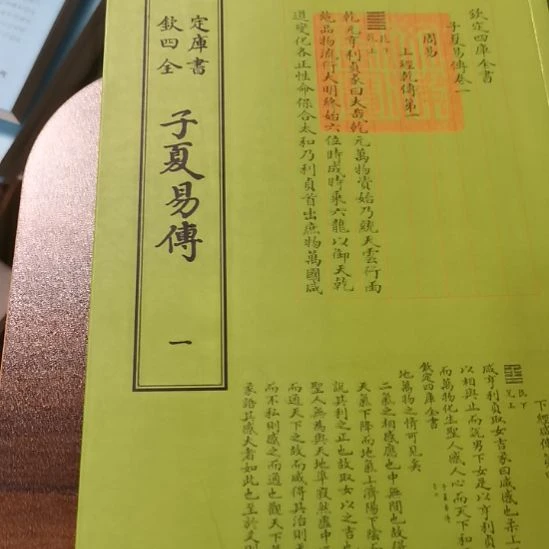 欽定
四庫
全書
子夏易傳
一
欽定四庫全書
子夏易傳卷一
周易
上經乾傳第一
乾下
乾上
乾元亨利貞彖曰大哉乾元萬物資始乃統天雲行雨
施品物流行大明終始六位時成時乘六龍以御天乾
道變化各正性命保合太和乃利貞首出庶物萬國咸
下經咸傳第
艮下
兌上
咸亨利貞取女吉彖曰咸感也柔上
以相與止而說男下女是以亨利貞
而萬物化生聖人感人心而天下和
欽定四庫全書
地萬物之情可見矣
二氣之相感應也中無間也故得
天氣下降而地氣上濟陽下陰
說其利之正也故取女以之吉
聖人無為與天地準寂然虛中
而通天下之故而咸得其治則天
而不私則感之而通也觀天下
彖語其感大者如此也至於天